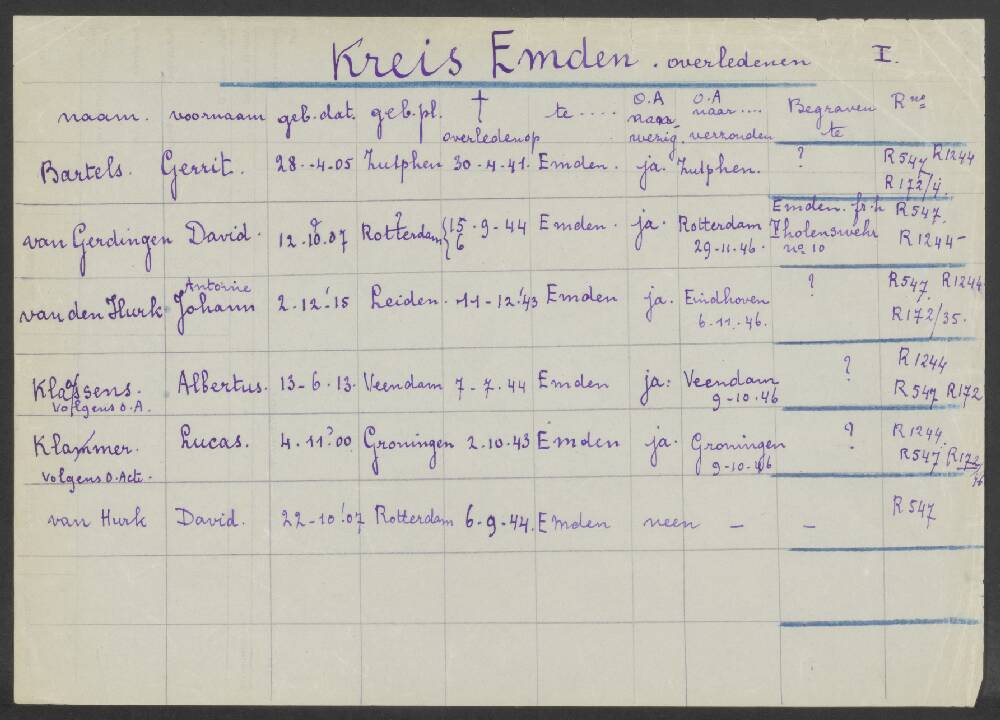 Kreis Emden . overledenen I.
naam. voornaam geb. dat. geb. pl. † overleden op te .... O.A aanwezig. O.A naar .... verzonden Begraven te R no
Bartels. Gerrit. 28-4-05 Zutphen 30-4-41. Emden. ja. Zutphen. ? R547 R1244
R172/4.
van Gerdingen David. 12.10.07 ? Rotterdam ? {15/6 .9-44 Emden. ja. Rotterdam Emden. fr.h R547.
29-11-46. Tholenswehr no 10 R1244
van den Hurk Antonie Johann 2.12.'15 Leiden. 11-12.'43 Emden ja. Eindhoven ? R547. R1244
6.11.-46. R172/35.
Klaassens. Albertus. 13-6.13. Veendam 7-7.44 Emden ja. Veendam ? R1244
volgens O.A. 9-10.46 R547 R172
Klammer. Lucas. 4.11?00 Groningen 2.10.43 Emden ja. Groningen ? R1244.
volgens O. Acte. 9-10-46 R547 R172/36
van Hurk David. 22-10.'07 Rotterdam 6-9-44. Emden neen – – R547